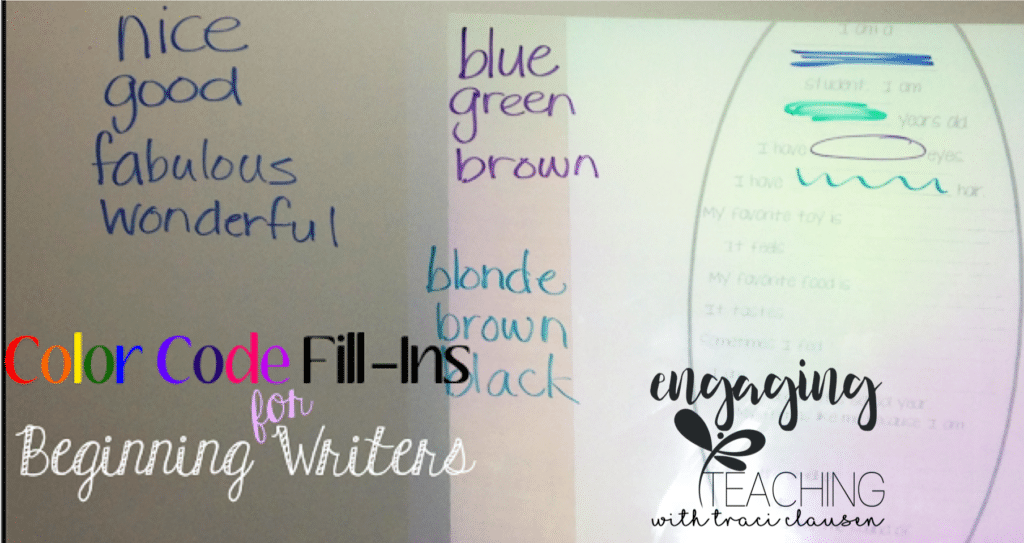 nice
good
fabulous
wonderful
blue
green
brown
blonde
brown
black
I am a
student. I am
years old.
I have eyes.
I have hair.
My favorite toy is
It feels
My favorite food is
It tastes
Sometimes I feel
Color Code Fill-Ins
for
Beginning Writers
engaging
TEACHING
with traci clausen